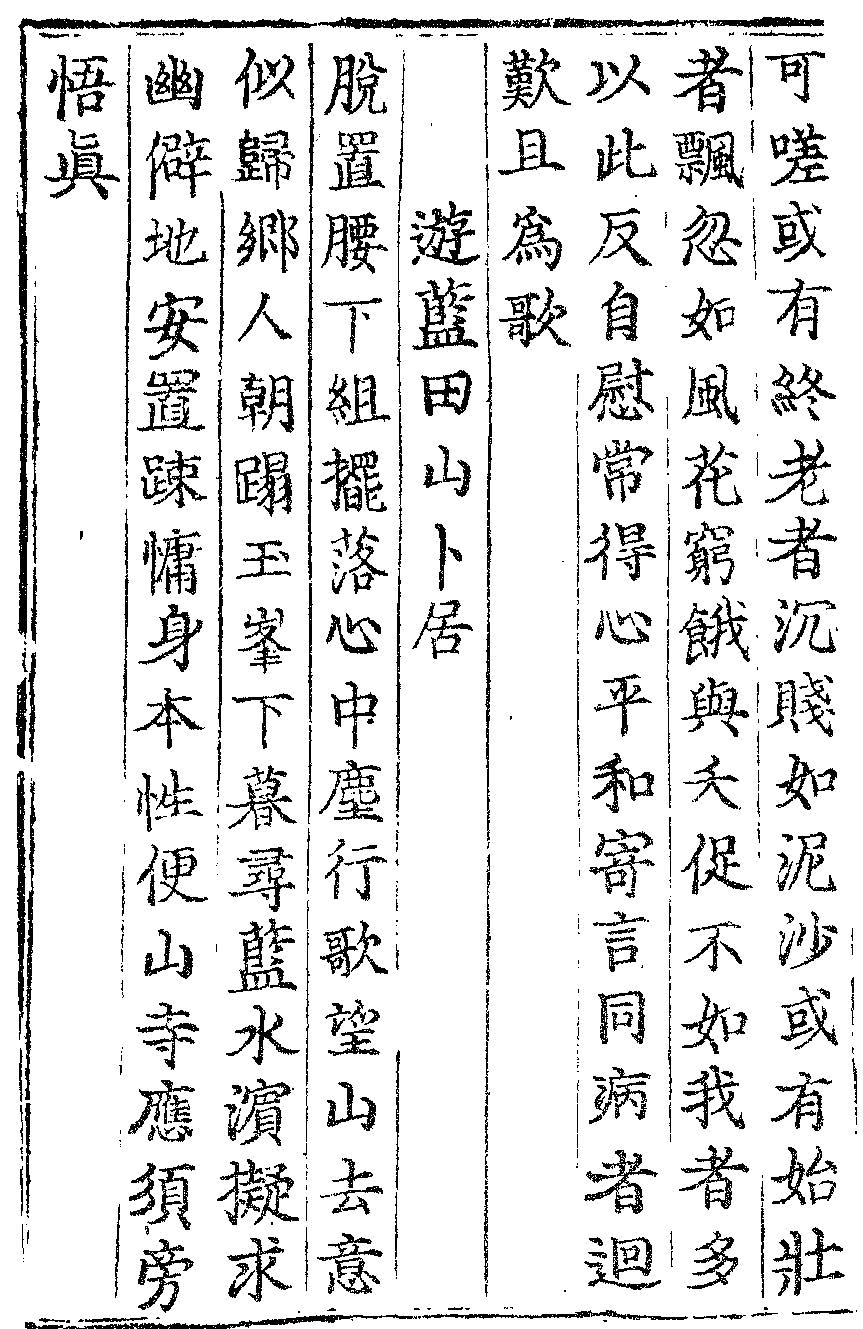 可嗟或有終老者沉賤如泥沙或有始壯
者飄忽如風花窮餓與夭促不如我者多
以此反自慰常得心平和寄言同病者迴
歎且爲歌
遊藍田山卜居
脫置腰下組擺落心中塵行歌望山去意
似歸鄉人朝蹋玉峯下暮尋藍水濱擬求
幽僻地安置疎慵身本性便山寺應須旁
悟眞